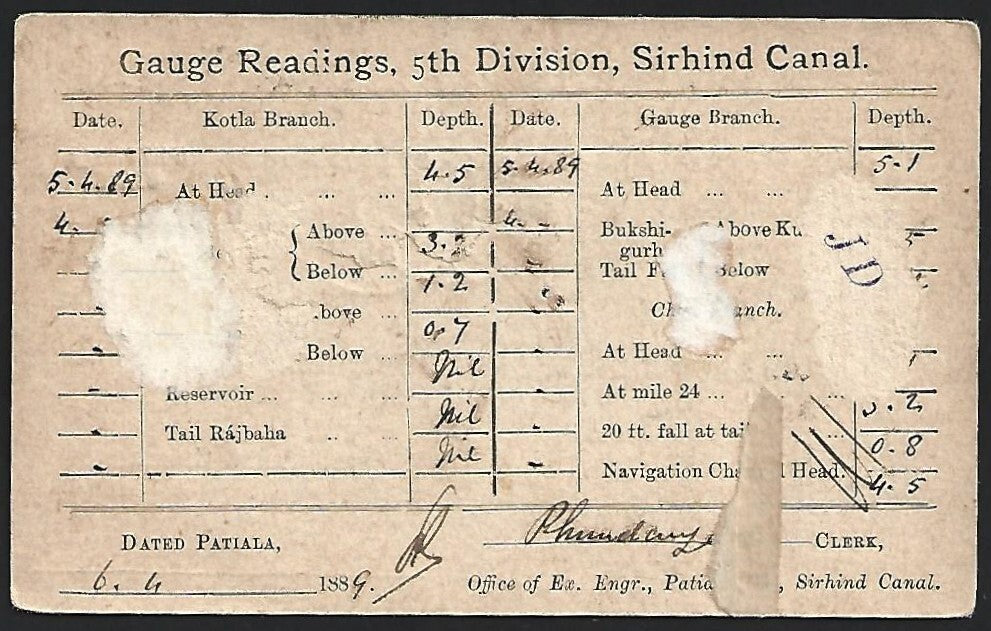 Gauge Readings, 5th Division, Sirhind Canal.
Date. Kotla Branch. Depth. Date. Gauge Branch. Depth.
5.4.89 At Head . ... ... 4.5 5.4.89 At Head ... ... 5.1
4. Above ... 3.2 4. Bukshi- Above
gurh
Below ... 1.2 Tail Below
bove ... 0.7 Branch.
Below ... Nil At Head ... ...
Reservoir ... ... ... Nil At mile 24 ...
Tail Rájbaha .. ... Nil 20 ft. fall at tail ... 0.8
Navigation Head. 4.5
JD
DATED PATIALA, CLERK,
6.4 1889. Office of Ex. Engr., , Sirhind Canal.